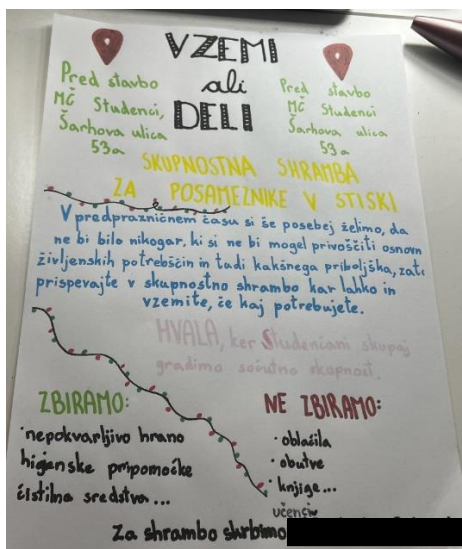 VZEMI
ali
DELI
Pred stavbo
MČ Studenci,
Šarhova ulica
53a
Pred stavbo
MČ Studenci
Šarhova ulica
53a
SKUPNOSTNA SHRAMBA
ZA POSAMEZNIKE V STISKI
V predprazničnem času si še posebej želimo, da
ne bi bilo nikogar, ki si ne bi mogel privoščiti osnovn
življenskih potrebščin in tudi kakšnega priboljška, zato
prispevajte v skupnostno shrambo kar lahko in
vzemite, če kaj potrebujete.
HVALA, ker Studenčani skupaj
gradimo sočutno skupnost.
ZBIRAMO:
·nepokvarljivo hrano
higienske pripomočke
čistilna sredstva...
NE ZBIRAMO:
· oblačila
· obutve
· knjige...
učenci
Za shrambo skrbimo